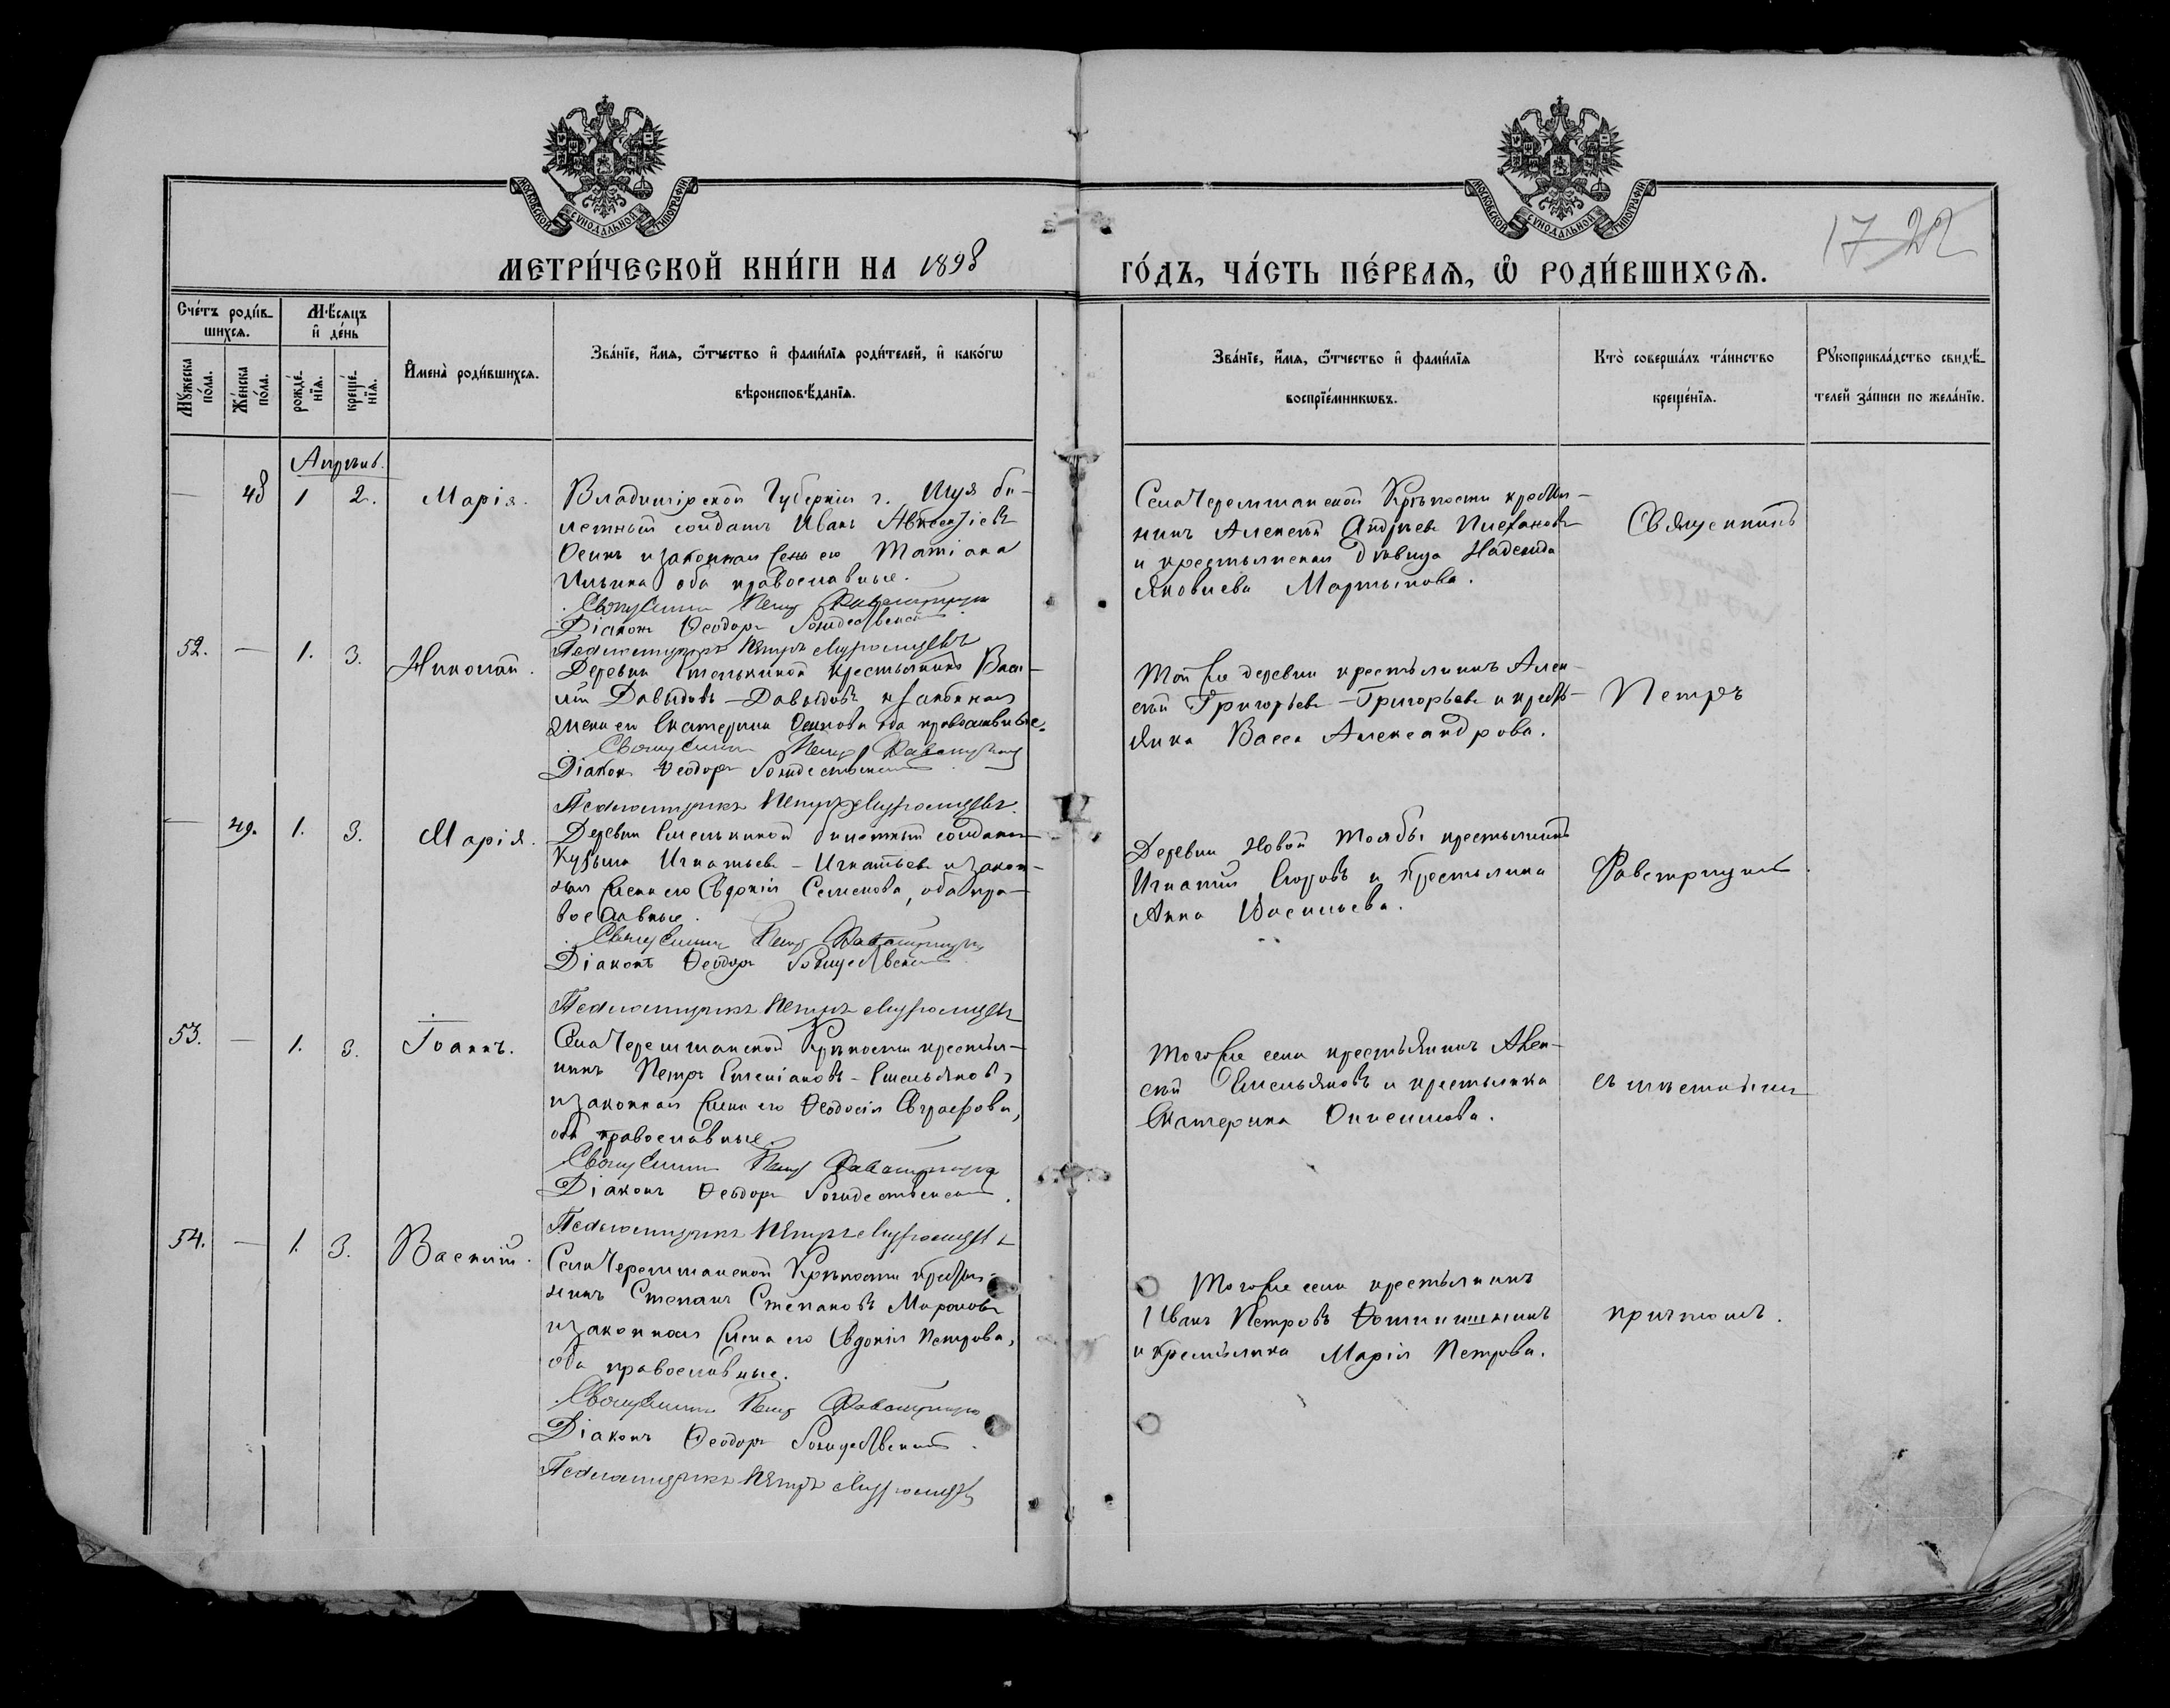 МОСКОВСКОЙ СѴНОДАЛЬНОЙ ТИПОГРАФІИ
МОСКОВСКОЙ СѴНОДАЛЬНОЙ ТИПОГРАФІИ
17 22
МЕТРИ́ЧЕСКОЙ КНИ́ГИ НА 1898
ГО́ДЪ, ЧА́СТЬ ПЕ́РВАѦ, Ѡ РОДИ́ВШИХСѦ.
Сче́тъ роди́в-
шихсѧ.
Мꙋжеска по́ла.
Же́нска по́ла.
Мѣ́сѧцъ
и҆ де́нь
рожде́-
нїѧ.
креще́-
нїѧ.
И҆мена̀ роди́вшихсѧ.
Зва́нїе, и҆́мѧ, ѻ҆́тчество и҆ фами́лїѧ роди́телей, и҆ како́гѡ
вѣроисповѣ́данїѧ.
Зва́нїе, и҆́мѧ, ѻ҆́тчество и҆ фами́лїѧ
воспрїе́мникѡвъ.
Кто̀ соверша́лъ та́инство
креще́нїѧ.
Рꙋкоприкла́дство свидѣ́-
телей за́писи по жела́нїю.
Апрѣль.
— 48 1 2. Марія.
Владимірской Губерніи г. Шуя би-
летный солдатъ Иванъ Авксентіевъ
и законная жена его Татіана
Ильина оба православные.
Священникъ Петръ Фавстрицкій
Діаконъ Ѳеодоръ Рождественскій
Псаломщикъ Петръ
Села Черемшанской Крѣпости крестья-
нинъ Алексѣй Андреевъ Плехановъ
и крестьянская дѣвица Надежда
Яковлева Мартынова.
Священникъ
52. — 1. 3. Николай.
Деревни Емелькиной крестьянинъ Васи-
лій Давыдовъ — Давыдовъ и законная
жена его Екатерина Осипова оба православные.
Священникъ Петръ Фавстрицкій
Діаконъ Ѳеодоръ Рождественскій
Псаломщикъ Петръ
Той же деревни крестьянинъ Алек-
сѣй Григорьевъ — Григорьевъ и кресть-
янка Васса Александрова.
Петръ
— 49. 1. 3. Марія.
Деревни Емелькиной билетный солдатъ
Кузьма Игнатьевъ — Игнатьевъ и закон-
ная жена его Евдокія Семенова, оба пра-
вославные.
Священникъ Петръ Фавстрицкій
Діаконъ Ѳеодоръ Рождественскій
Псаломщикъ Петръ
Деревни Новой Тоябы крестьянинъ
Игнатій Егоровъ и крестьянка
Анна Васильева.
Фавстрицкій.
53. — 1. 3. Іоаннъ.
Села Черемшанской Крѣпости крестья-
нинъ Петръ Емеліановъ — Емельяновъ,
и законная жена его Ѳеодосія Евграфова,
оба православные.
Священникъ Петръ Фавстрицкій
Діаконъ Ѳеодоръ Рождественскій.
Псаломщикъ Петръ
Того же села крестьянинъ Алек-
сѣй Емельяновъ и крестьянка
Екатерина Онисимова.
съ мѣстнымъ
54. — 1. 3. Василій.
Села Черемшанской Крѣпости крестья-
нинъ Степанъ Степановъ Мироновъ
и законная жена его Евдокія Петрова,
оба православные.
Священникъ Петръ Фавстрицкій
Діаконъ Ѳеодоръ Рождественскій.
Псаломщикъ Петръ
Того же села крестьянинъ
Иванъ Петровъ
и крестьянка Марія Петрова.
причтомъ.